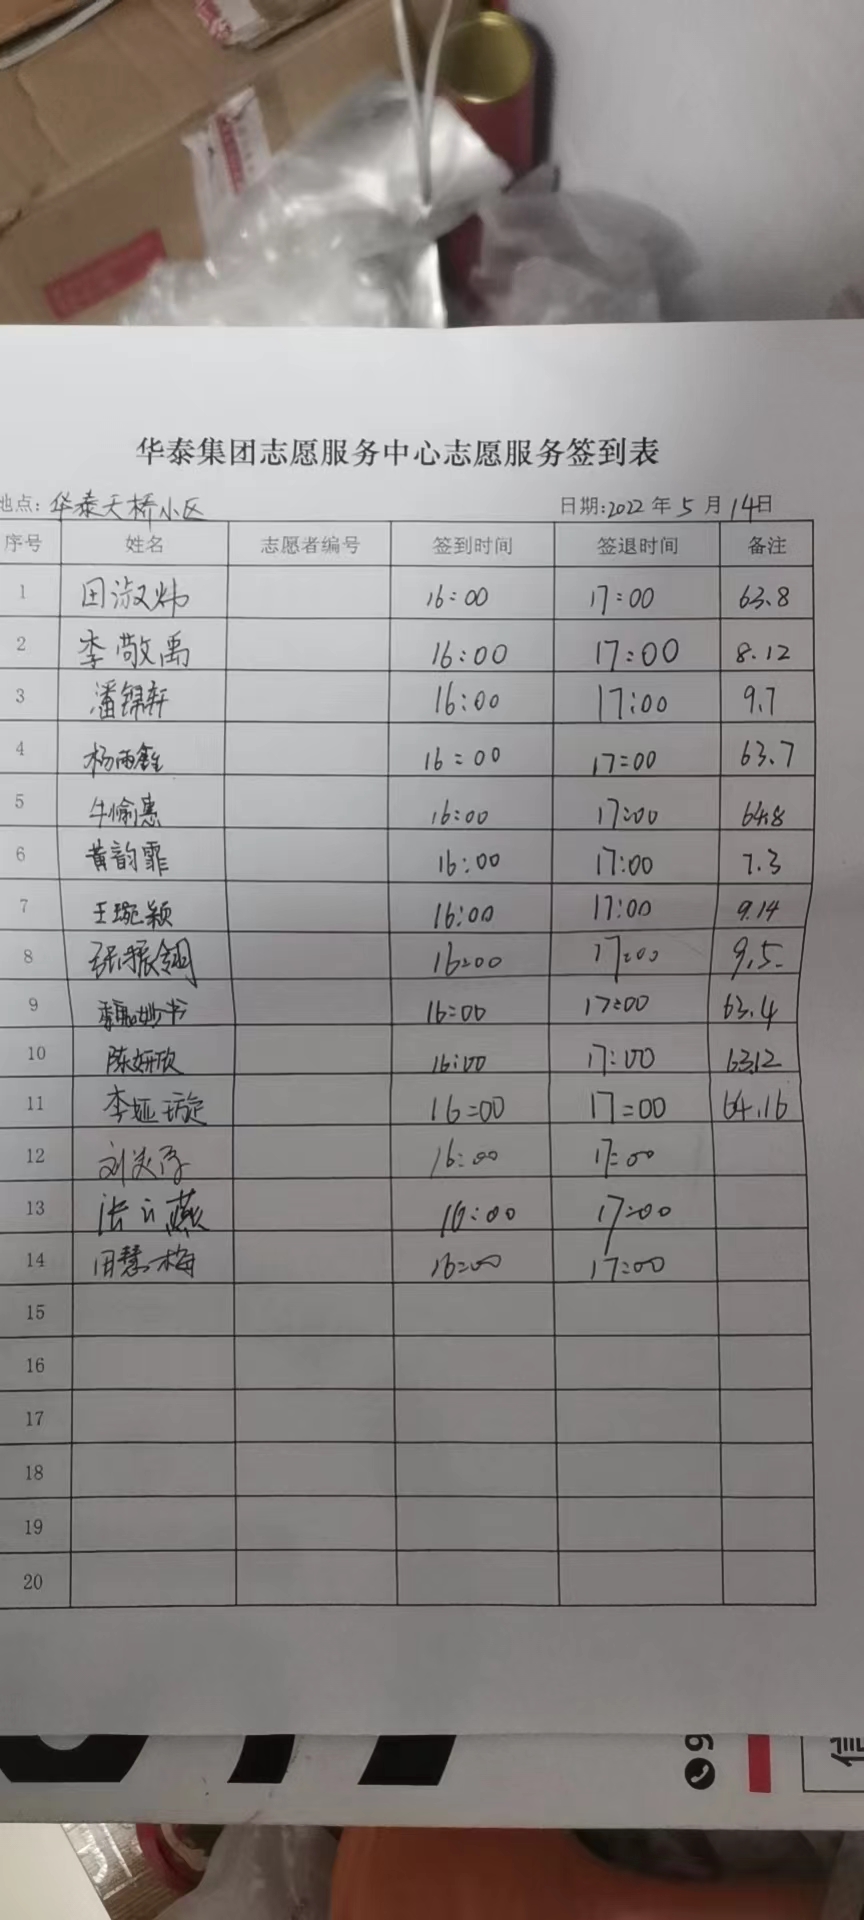 华泰集团志愿服务中心志愿服务签到表
地点: 华泰天桥小区 日期:2022年5月14日
序号 姓名 志愿者编号 签到时间 签退时间 备注
1 田淑炜 16:00 17:00 63.8
2 李敬禹 16:00 17:00 8.12
3 潘锦轩 16:00 17:00 9.7
4 杨雨鑫 16:00 17:00 63.7
5 牛愉惠 16:00 17:00 64.8
6 黄韵霏 16:00 17:00 7.3
7 王琬颖 16:00 17:00 9.14
8 张振钢 16:00 17:00 9.5
9 魏妙书 16:00 17:00 63.4
10 陈妍欣 16:00 17:00 63.12
11 李娅璇 16:00 17:00 64.16
12 16:00 17:00
13 张立燕 16:00 17:00
14 田慧梅 16:00 17:00
15
16
17
18
19
20
9
信